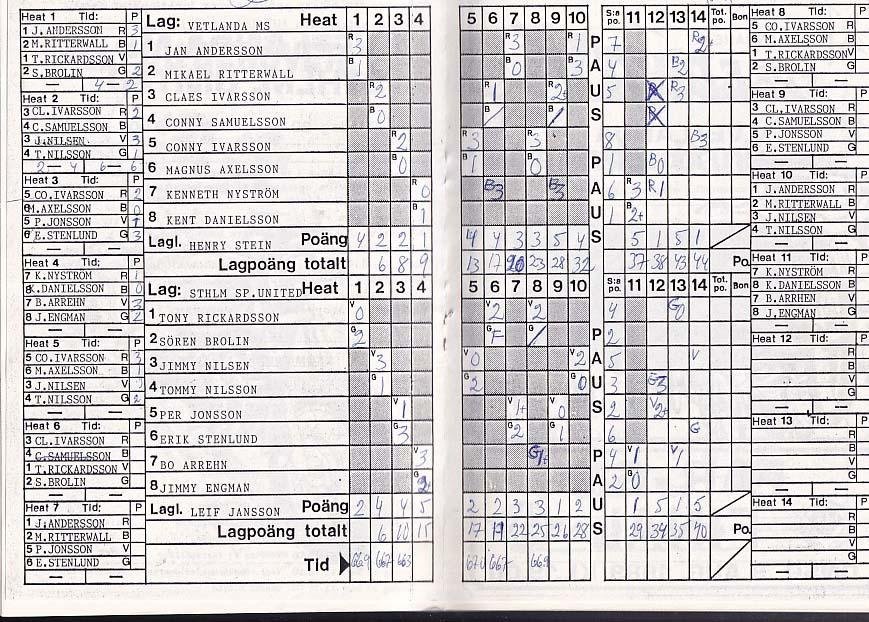 Heat 1 Tid: P
1 J. ANDERSSON R 3
2 M.RITTERWALL B 1
1 T.RICKARDSSON V
2 S.BROLIN G 2
4 — 2
Heat 2 Tid:
3 CL.IVARSSON R 2
4 C.SAMUELSSON B
3 J.NILSEN V 3
4 T.NILSSON G 1
2 — 4 6 — 6
Heat 3 Tid:
5 CO.IVARSSON R 2
6 M.AXELSSON B 0
5 P.JONSSON V 1
6 E.STENLUND G 3
Heat 4 Tid:
7 K.NYSTRÖM R 1
8 K.DANIELSSON B 0
7 B.ARREHN V 3
8 J.ENGMAN G 2
Heat 5 Tid:
5 CO.IVARSSON R 3
6 M.AXELSSON B 1
3 J.NILSEN V
4 T.NILSSON G 2
Heat 6 Tid:
3 CL.IVARSSON R
4 C.SAMUELSSON B
1 T.RICKARDSSON V
2 S.BROLIN G
Heat 7 Tid:
1 J.ANDERSSON R
2 M.RITTERWALL B
5 P.JONSSON V
6 E.STENLUND G
Lag: VETLANDA MS Heat 1 2 3 4
1 JAN ANDERSSON R 3
2 MIKAEL RITTERWALL B 1
3 CLAES IVARSSON R 2
4 CONNY SAMUELSSON B 0
5 CONNY IVARSSON R 2
6 MAGNUS AXELSSON B 0
7 KENNETH NYSTRÖM R 0
8 KENT DANIELSSON B 1
Lagl. HENRY STEIN Poäng 4 2 2 1
Lagpoäng totalt 6 8 9
Lag: STHLM SP.UNITED Heat 1 2 3 4
1 TONY RICKARDSSON V 0
2 SÖREN BROLIN G 2
3 JIMMY NILSEN V 3
4 TOMMY NILSSON G 1
5 PER JONSSON V 1
6 ERIK STENLUND G 3
7 BO ARREHN V 3
8 JIMMY ENGMAN G 2
Lagl. LEIF JANSSON Poäng 2 4 4 5
Lagpoäng totalt 6 10 15
Tid 669 667 663
5 6 7 8 9 10 S:a po. 11 12 13 14 Tot. po. Bon
R 3 R 1 7 R 2+
B 0 B 3 4 B 2
R 1 R 2+ 5 R 3
B B
R 3 R 3 8 B 3
B 1 B 0 1 B 0
B 3 B 3 6 R 3 R 1
B 2+
PAUS PAUS
4 4 3 3 5 4 5 1 5 1
13 17 20 23 28 32 37 38 43 44 Po.
5 6 7 8 9 10 S:a po. 11 12 13 14 Tot. po. Bon
V 2 V 2 4 G 0
G F G 2
V 0 V 2 5 V
G 2 G 0 3 G 3
V 1+ V 0 2 V 2+
G 2 G 1 6 G
G 1+ 4 V 1 V 1
2 G 0
PAUS PAUS
2 2 3 3 1 2 1 5 1 5
17 19 22 25 26 28 29 34 35 40 Po.
670 667 669
Heat 8 Tid: P
5 CO.IVARSSON R
6 M.AXELSSON B
1 T.RICKARDSSON V
2 S.BROLIN G
Heat 9 Tid:
3 CL.IVARSSON R
4 C.SAMUELSSON B
5 P.JONSSON V
6 E.STENLUND G
Heat 10 Tid:
1 J.ANDERSSON R
2 M.RITTERWALL B
3 J.NILSEN V
4 T.NILSSON G
Heat 11 Tid:
7 K.NYSTRÖM R
8 K.DANIELSSON B
7 B.ARRHEN V
8 J.ENGMAN G
Heat 12 Tid:
R
B
V
G
Heat 13 Tid:
R
B
V
G
Heat 14 Tid:
R
B
V
G